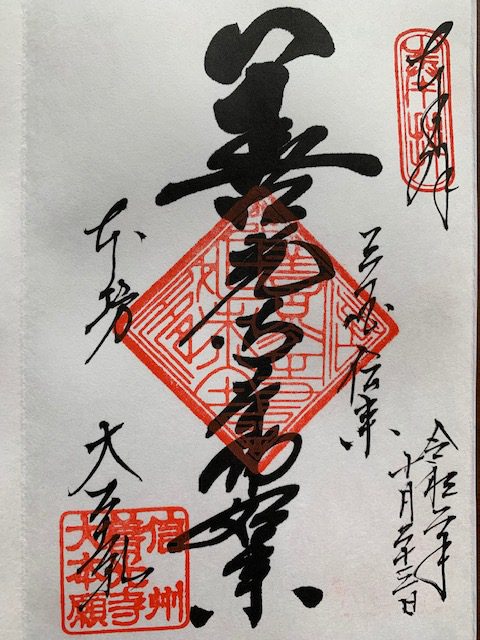 奉拝
奉拝
三国伝来
令和二年
十月二十三日
善光寺 如来
本坊
大本願
信州
善光寺
大本願